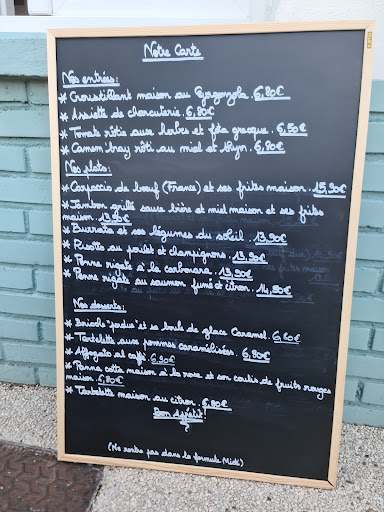 Notre Carte
Nos entrées:
* Croustillant maison au Gorgonzola. 6,80€
* Assiette de charcuterie. 6,80€
* Tomate rôtie aux herbes et féta grecque. 6,50€
* Camembray rôti au miel et thym. 6,80€
Nos plats:
* Carpaccio de bœuf (France) et ses frites maison. 15,90€
* Jambon grillé sauce bière et miel maison et ses frites
maison. 13,90€
* Burrata et ses légumes du soleil. 13,90€
* Risotto au poulet et champignons. 13,90€
* Penne rigate à la carbonara. 13,90€
* Penne rigate au saumon fumé et citron. 14,80€
Nos desserts:
* Brioche "perdue" et sa boule de glace Caramel. 6,80€
* Tartelette aux pommes caramélisées. 6,80€
* Affogato al caffé. 6,90€
* Panna cotta maison à la noce et son coulis de fruits rouges
maison. 6,80€
* Tartelette maison au citron. 6,80€
Bon appétit!
(Ne rentre pas dans la formule Midi)